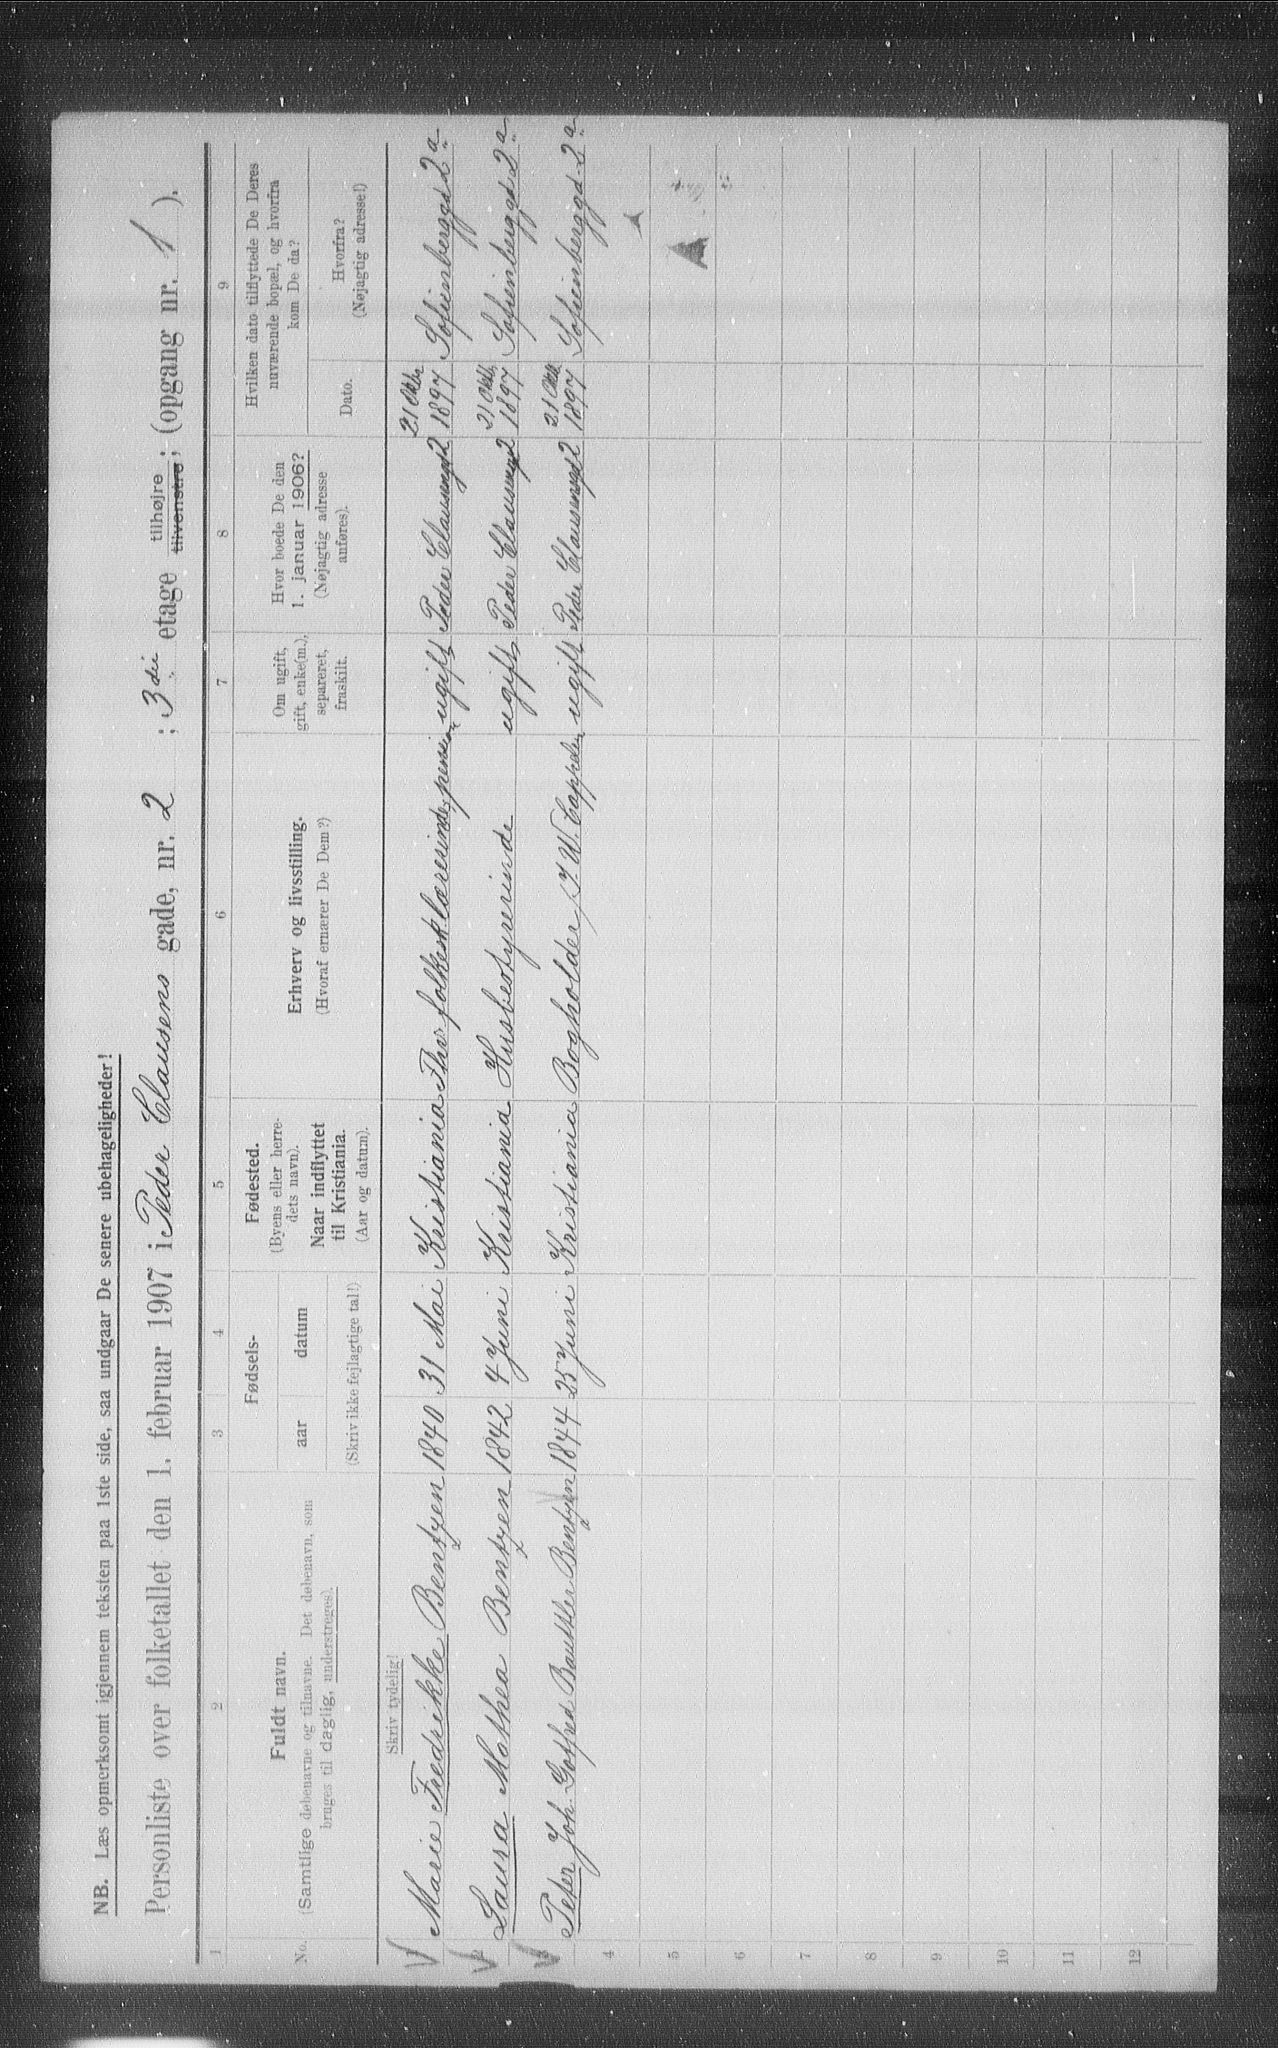 NB. Læs opmerksomt igjennem teksten paa 1ste side, saa undgaar De senere ubehageligheder!
Personliste over folketallet den 1. februar 1907 i Peder Clausens gade, nr. 2 ; 3die etage tilhøjre tilvenstre; (opgang nr. 1 ).
1 2 3 4 5 6 7 8 9
No. Fuldt navn. (Samtlige døbenavne og tilnavne. Det døbenavn, som bruges til daglig, understreges).
Fødsels- aar datum (Skriv ikke fejlagtige tal!)
Fødested. (Byens eller herredets navn). Naar indflyttet til Kristiania. (Aar og datum).
Erhverv og livsstilling. (Hvoraf ernærer De Dem?)
Om ugift, gift, enke(m.), separeret, fraskilt.
Hvor boede De den 1. januar 1906? (Nøjagtig adresse anføres).
Hvilken dato tilflyttede De Deres nuværende bopæl, og hvorfra kom De da?
Dato. Hvorfra? (Nøjagtig adresse!)
Skriv tydelig!
1 Marie Fredrikke Bentzen 1840 31 Mai Kristiania folkesklærerinde, pension ugift Peder Clausengd 2 21 Oktbr 1897 Sofienberggd 2a
2 Laura Mathea Bentzen 1842 4 Juni Kristiania Husbestyrerinde ugift Peder Clausengd 2 21 Oktbr 1897 Sofienberggd 2a
3 Peter Joh. Gotfred Bauthler Bentzen 1844 25 Juni Kristiania Bogholder, J. W. Cappelen ugift Peder Clausensgd 2 21 Oktb 1897 Sofienberggd. 2a
4
5
6
7
8
9
10
11
12